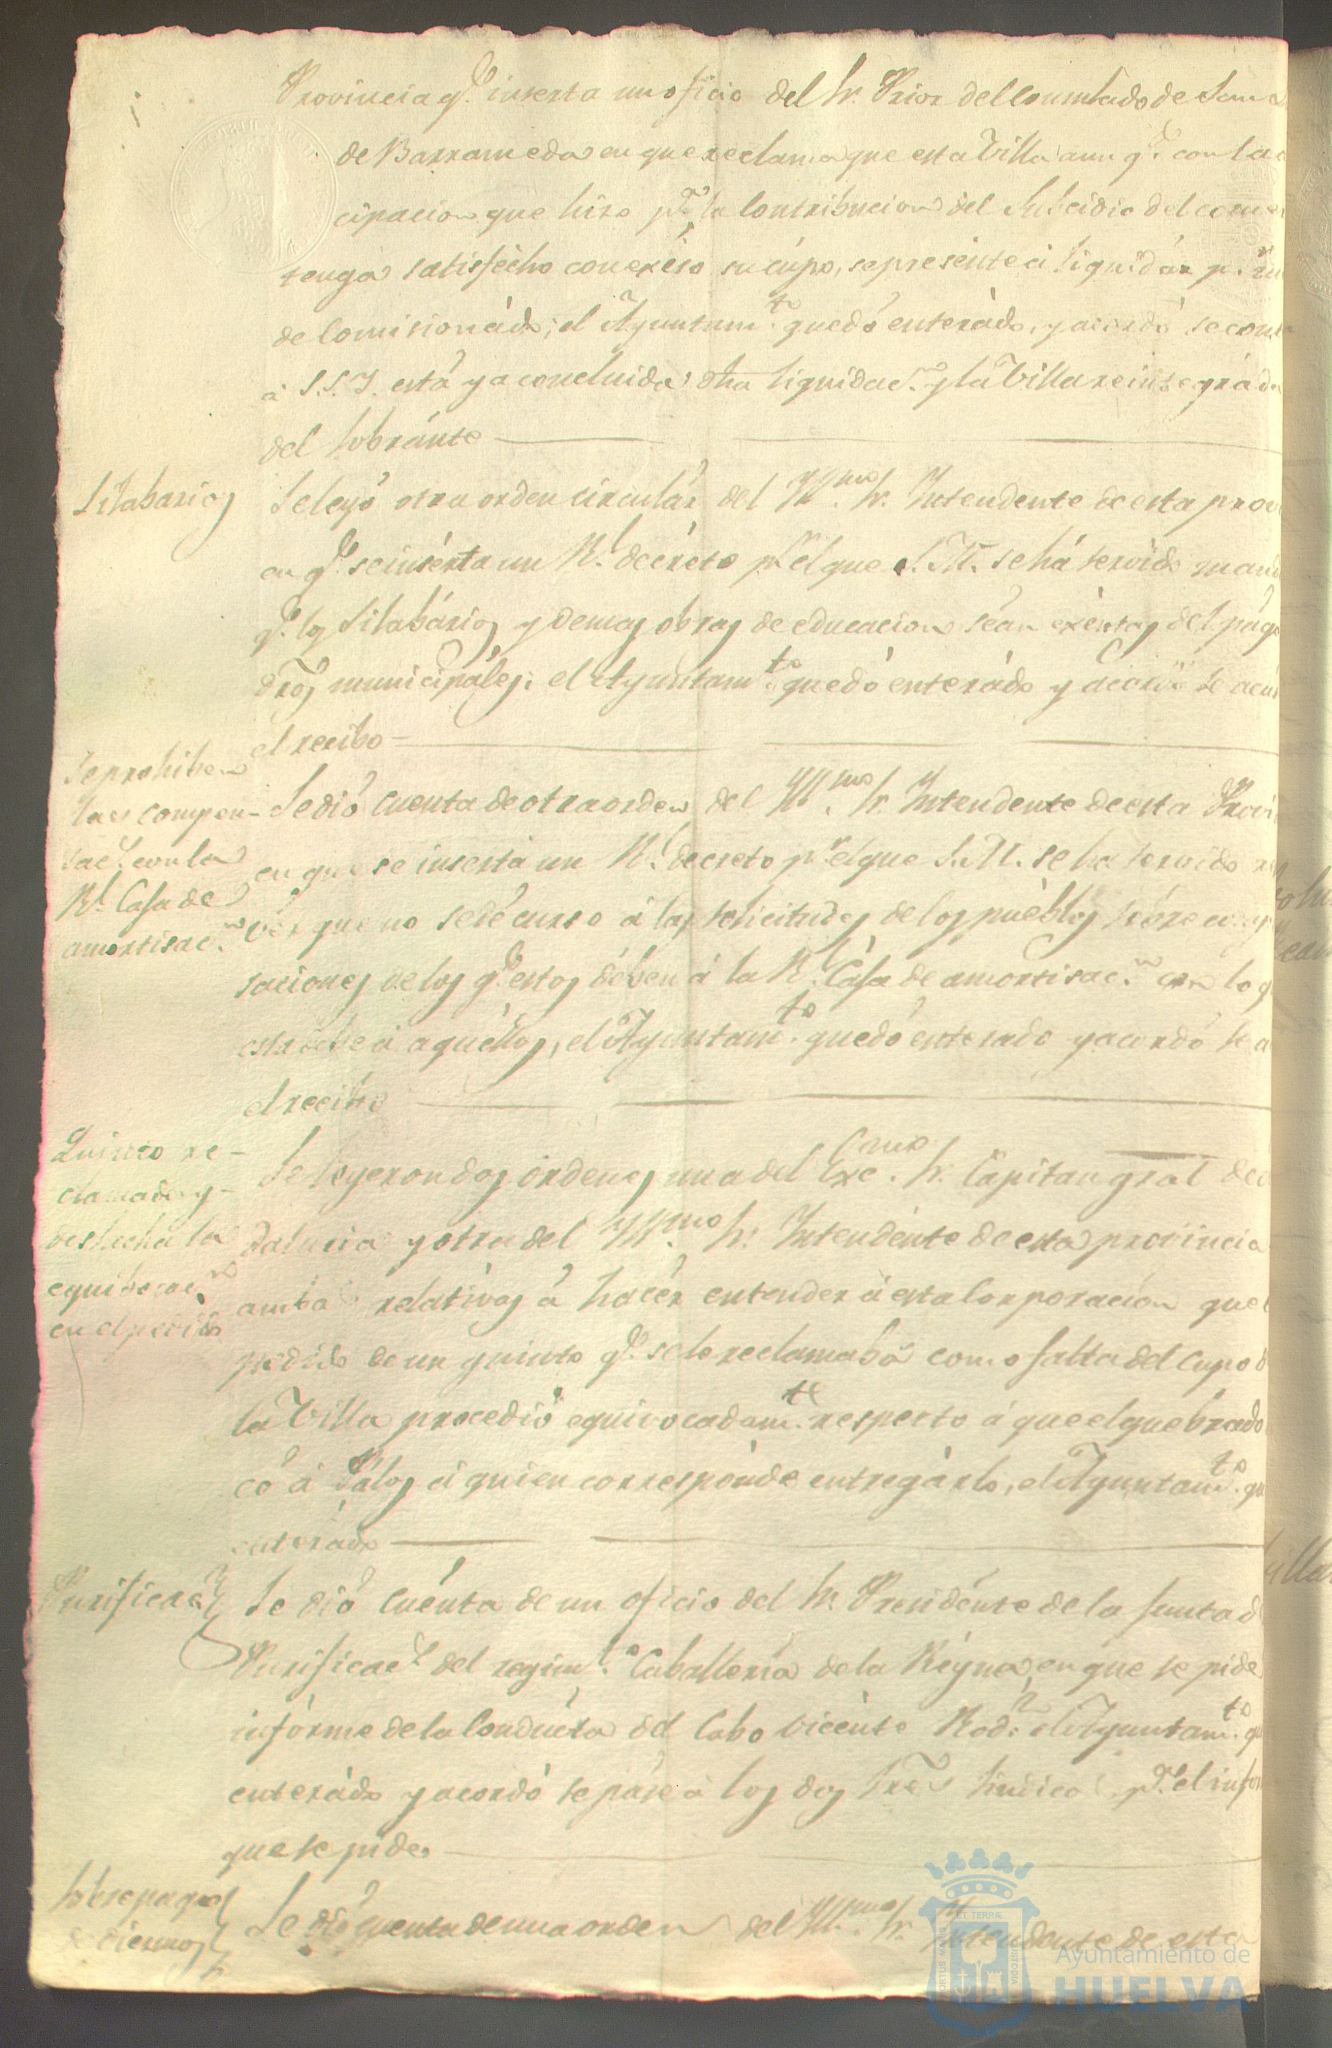 Provincia q.e inserta un oficio del Sr. Prior del Consulado de San
de Barrameda en que reclama que esta Villa aun q.e con la
cipacion que hizo p.a la Contribucion del Subcidio del comer
tenga satisfecho con exceso su cupo, se presente á liquidár p.r
de Comisionádo; el Ayuntam.to quedó enterádo, y acordó se cont
á S.S.I. está ya concluida dha liquidac.n y la Villa reintegráda
del sobránte
Silabarios
Se leyó otra orden circulár del Yll.mo Sr. Yntendente de esta prov
en q.e se insérta un R.l decréto p.r el que S.M. se há servido
q.e los Silabários y demas obras de educacion séan exéntas del págo
dros municipáles; el Ayuntam.to quedó enterádo y acordó se acús
el recibo
Se prohiben
las compen-
sac.s con la
R.l Casa de
amortisac.n
Se dió cuenta de otra orden del Yll.mo Sr. Yntendente de esta Provi
en que se inserta un R.l decreto p.r el que S.M. se ha servido
vér que no se dé curso á las solicitudes de los puéblos sobre
saciones de los q.e estos dében á la R.l Cása de amortisac.n con lo q
esta débe á aquéllos, el Ayuntam.to quedó enterado y acordó se a
el recibo
Quinto re-
clamado y
deshecha la
equibocac.n
en el pedido
Se leyeron dos órdenes una del Exc.mo Sr. Capitan gral de
dalucia y otra del Yll.mo Sr. Yntendénte de esta província
ambas relatívas á hacér entender á esta Corporación que
pedido de un quinto q.e se le reclamabá como falta del cupo
la Villa procedió equivocadam.te respecto á que el quebrado
có á Pálos á quien correspónde entregárlo, el Ayuntam.to qu
enterádo
Purificac.n
Se dió cuénta de un oficio del Sr. Presidénte de la Junta d
Purificac.s del regim.to Caballería de la Réyna, en que se pide
infórme de la Condúcta del Cabo Vicénte Rod.z el Ayuntam.to qu
enterádo y acordó se páse á los dos Sres Sindicos p.a el infor
que se pide
Sobre pagos
de diezmos
Se dió cuenta de una orden del Yll.mo Sr. Yntendente de esta
PORTUS MARIS
ET TERRÆ
CUSTODIA
Ayuntamiento de
HUELVA